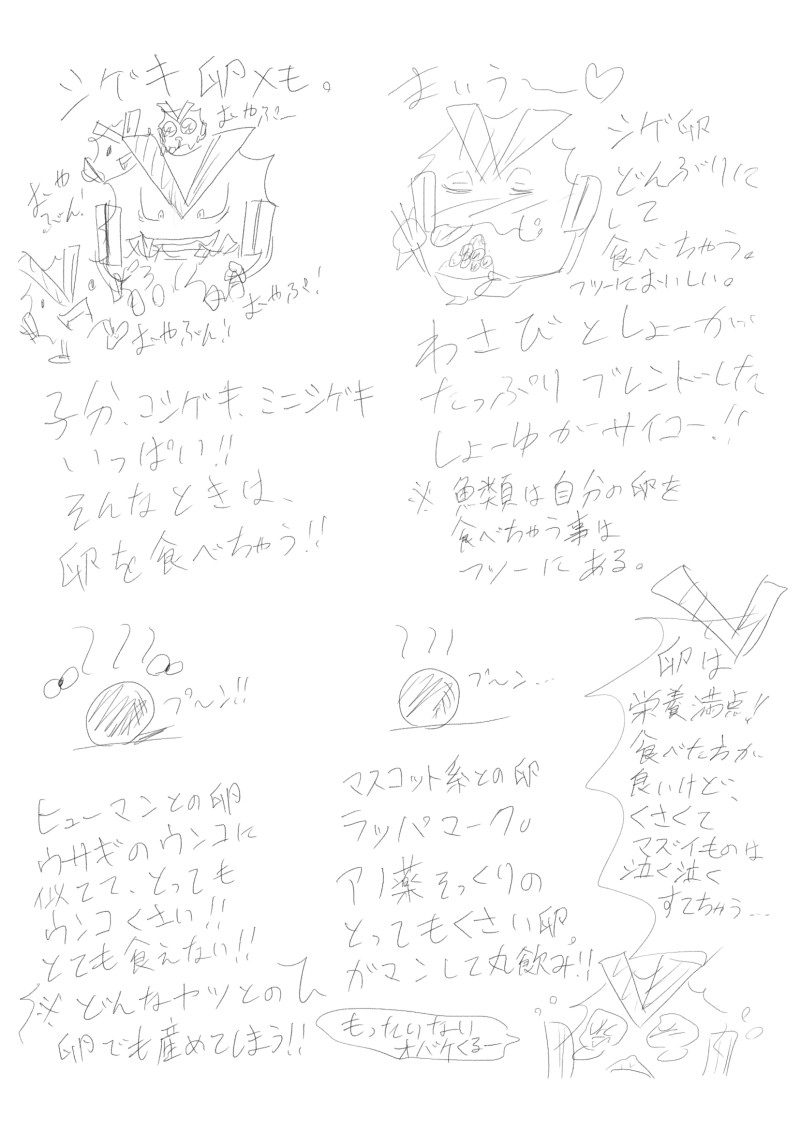 シゲキ 卵メモ。
おーやぶんー
おーや
ぶん!
おーやぶん!
おーやぶん!!
子分、コシゲキ、ミニシゲキ
いっぱい!!
そんなときは、
卵を食べちゃう!!
まいうー〜♡
シゲ卵
どんぶりに
して
食べちゃう。
フツーにおいしい。
わさびとしょーが
たっぷり ブレンドーした
しょーゆがサイコー!!
※ 魚類は自分の卵を
食べちゃう事は
フツーにある。
プ〜ン!!
ヒューマンとの卵
ウサギのウンコに
似てて、とっても
ウンコくさい!!
とても食えない!!
※ どんなヤツとの
卵でも産めてしまう!!
プ〜ン…
マスコット系との卵
ラッパマーク。
アノ薬そっくりの
とってもくさい卵。
ガマンして丸飲み!!
もったいない
オバケくるー
卵は
栄養満点!!
食べたおが
良いけど、
くさくて
マズイものは
泣く泣く
すてちゃう…